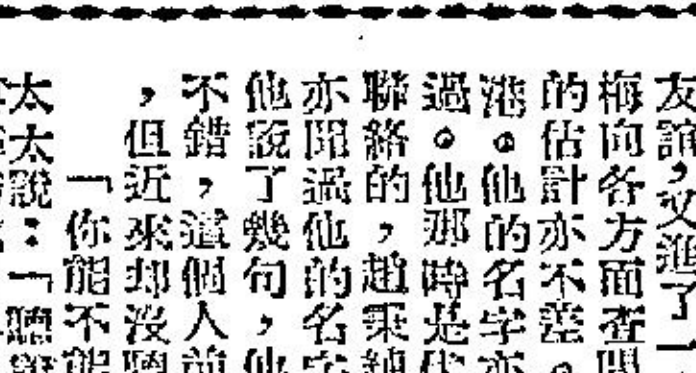 友誼，又進了一
梅向各方面查
的估計亦不差。
港。他的名字亦
過。他那時是代
聯絡的，趙秉鈞
亦聞過他的名字
他說了幾句，他
不錯，這個人前
，但近來却沒
「你能不能
太太說：「聽